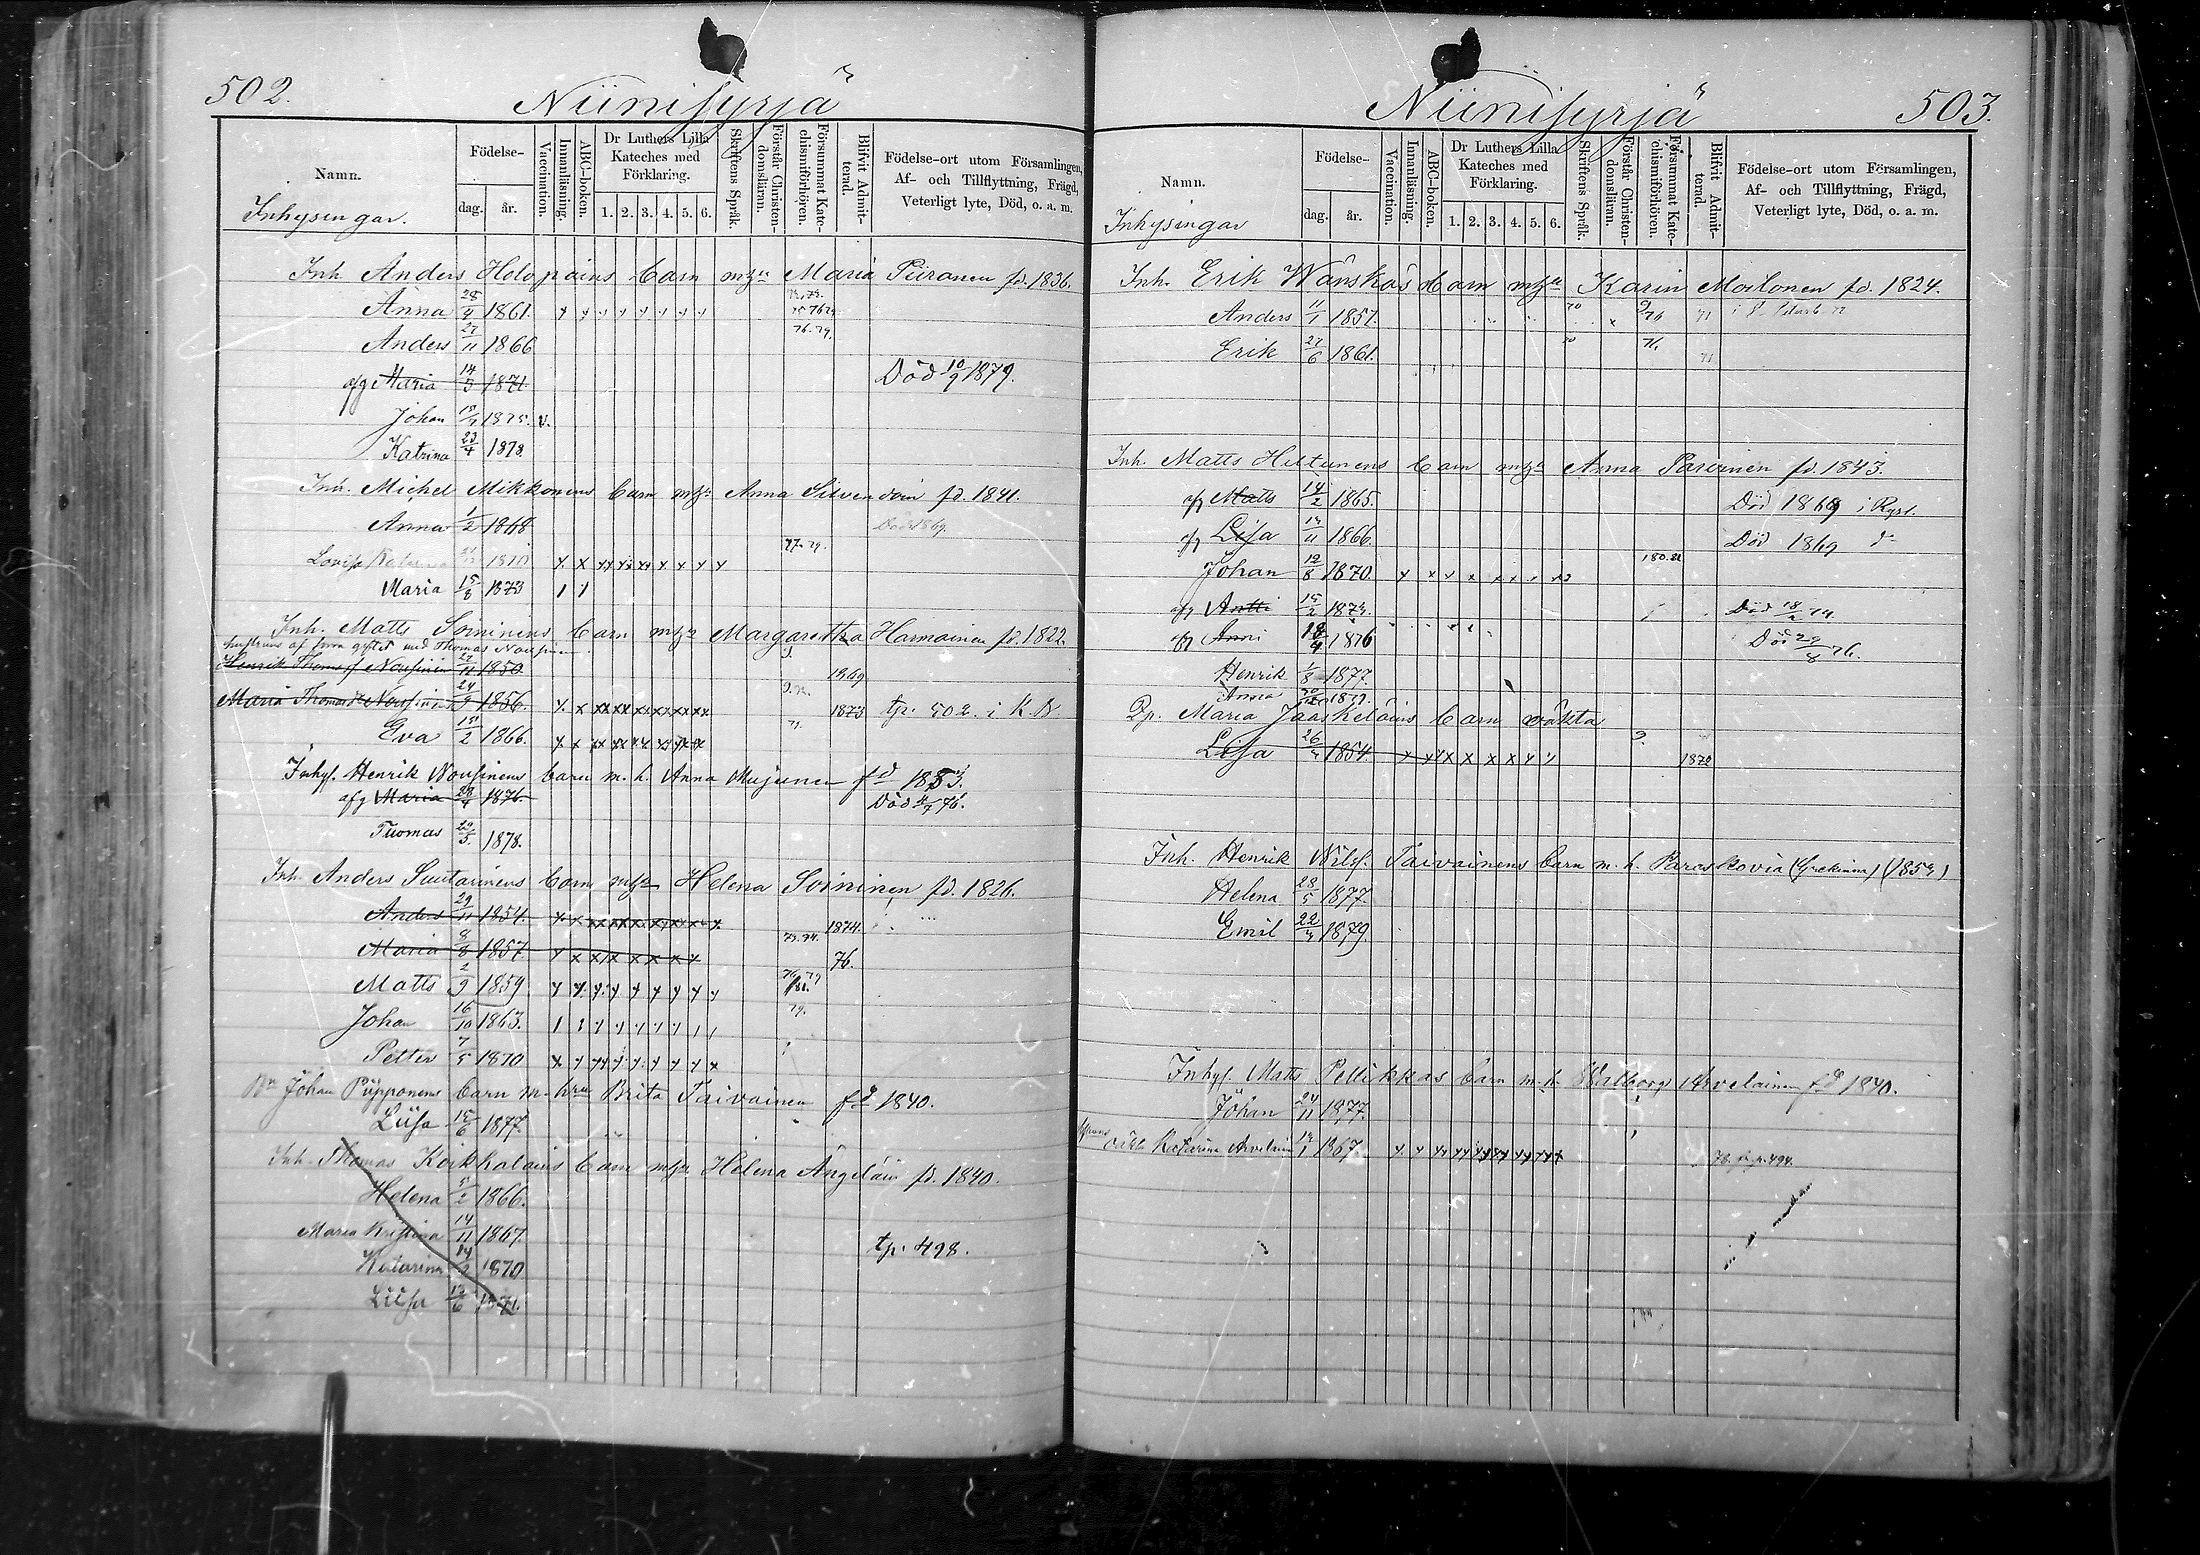 502.
Niinisyrjä
Namn.
Födelse-
dag.
år.
Vaccination.
Innanläsning.
ABC-boken.
Dr Luthers Lilla
Kateches med
Förklaring.
1. 2. 3. 4. 5. 6.
Skriftens Språk.
Förstår Christen-
domsläran.
Försummat Kate-
chismiförhören.
Blifvit Admit-
terad.
Födelse-ort utom Församlingen,
Af- och Tillflyttning, Frägd,
Veterligt lyte, Död, o. a. m.
Inhysingar.
Inh. Anders Holopains barn mhu Maria Piironen fd. 1836.
Anna 28/4 1861.
Anders 27/11 1866
afg Maria 14/3 1871 Död 10/9 1879.
Johan 1875. v.
Katrina 23/4 1878.
Inh. Michel Mikkonens barn mhu Anna Silvendoin fd. 1841.
Anna 1/2 1868. Död 1869.
Lovisa Katarina 1870 77. 79.
Maria 15/8 1873
Inh. Matts Soininens barn mhu Margaretha Harmainen fd. 1822.
Hustruns af förra giftet med Thomas Nousiainen
Henrik Thomas Nousiain 22/11 1850 1869
Maria Thomas Nousiain 24/9 1856. 1873 tp. 502. i K.B.
Eva 15/2 1866. 79.
Inhys. Henrik Nousiainens barn m. h. Anna Mujunen fd 1853.
afg Maria 28/4 1876. Död 4/7 76.
Tuomas 20/5 1878.
Inh. Anders Suutarinens barn mhu Helena Soininen fd. 1826.
Anders 29/11 1854. 1874.
Maria 8/8 1857 73. 74. 76.
Matts 2/9 1859 76. 79 /81.
Johan 16/10 1863. 79.
Petter 7/5 1870
Johan Piipponens barn m. hru Brita Taivainen fd 1840.
Liisa 15/6 1877.
Inh. Thomas Korkkalains barn mhu Helena Ängeläin fd. 1840.
Helena 5/2 1866.
Maria Kristina 14/11 1867.
tp. 498.
Katarina 14/2 1870
Liisa 13/6 1871.
503.
Niinisyrjä
Namn.
Födelse-
dag.
år.
Vaccination.
Innanläsning.
ABC-boken.
Dr Luthers Lilla
Kateches med
Förklaring.
1. 2. 3. 4. 5. 6.
Skriftens Språk.
Förstår Christen-
domsläran.
Försummat Kate-
chismiförhören.
Blifvit Admit-
terad.
Födelse-ort utom Församlingen,
Af- och Tillflyttning, Frägd,
Veterligt lyte, Död, o. a. m.
Inhysingar
Inh. Erik Wänskäs barn mhu Karin Mortonen fd. 1824.
Anders 11/1 1857.
Erik 27/6 1861.
Inh. Matts Hiltunens barn mhu Anna Parvinen fd. 1843.
afg Matts 14/2 1865. Död 1869 i Ryssl.
afg Lisa 1866. Död 1869 do
Johan 12/8 1870.
afg Antti 15/2 1874. Död 18/2 74.
afg Anni 18/4 1876 Död 29/8 76.
Henrik 1/8 1877.
Anna 1879.
Qp. Maria Jääskeläins barn oäkta
Lisa 26/4 1854 1872
Inh. Henrik Nilsf. Taivainens barn m. h. Paraskovia (Grekinna) (1854)
Helena 28/5 1877.
Emil 22/4 1879.
Inhys. Matts Pellikkas barn m. h. Walborg Arvelainen fd 1840.
Johan 24/11 1877.
oäkta Katarina Arvelain 1867. 78. fr. p. 494.